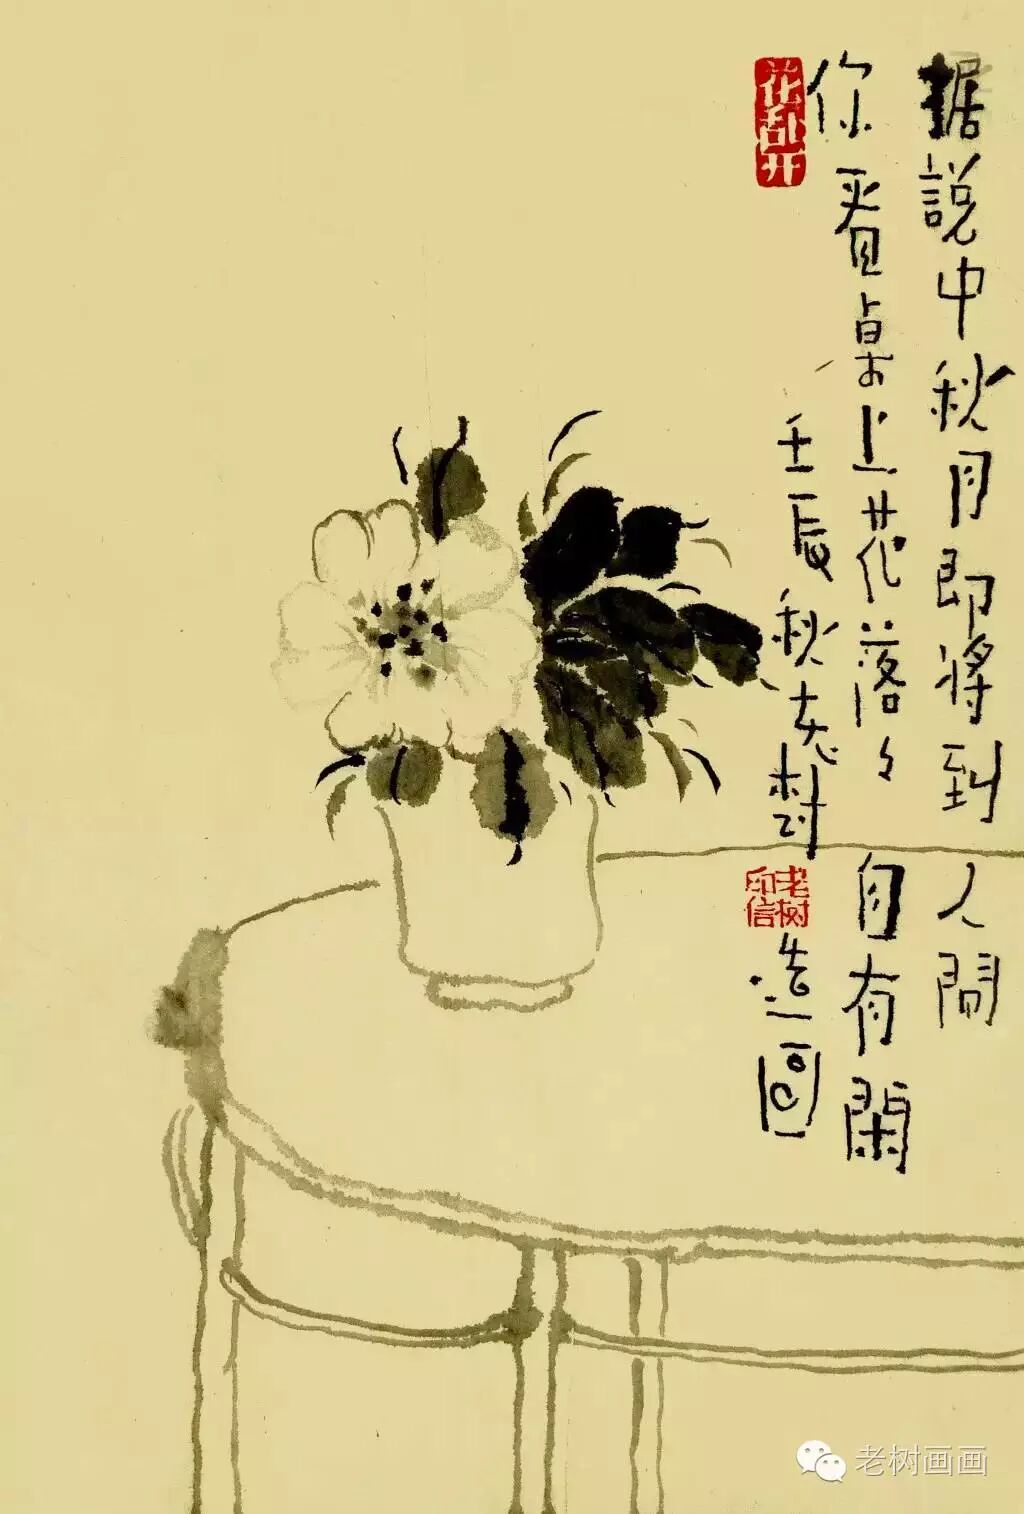 据說中秋月即將到人間
你看桌上花落々自有閑
壬辰秋老樹造圖
花乱开
老树印信
老树画画